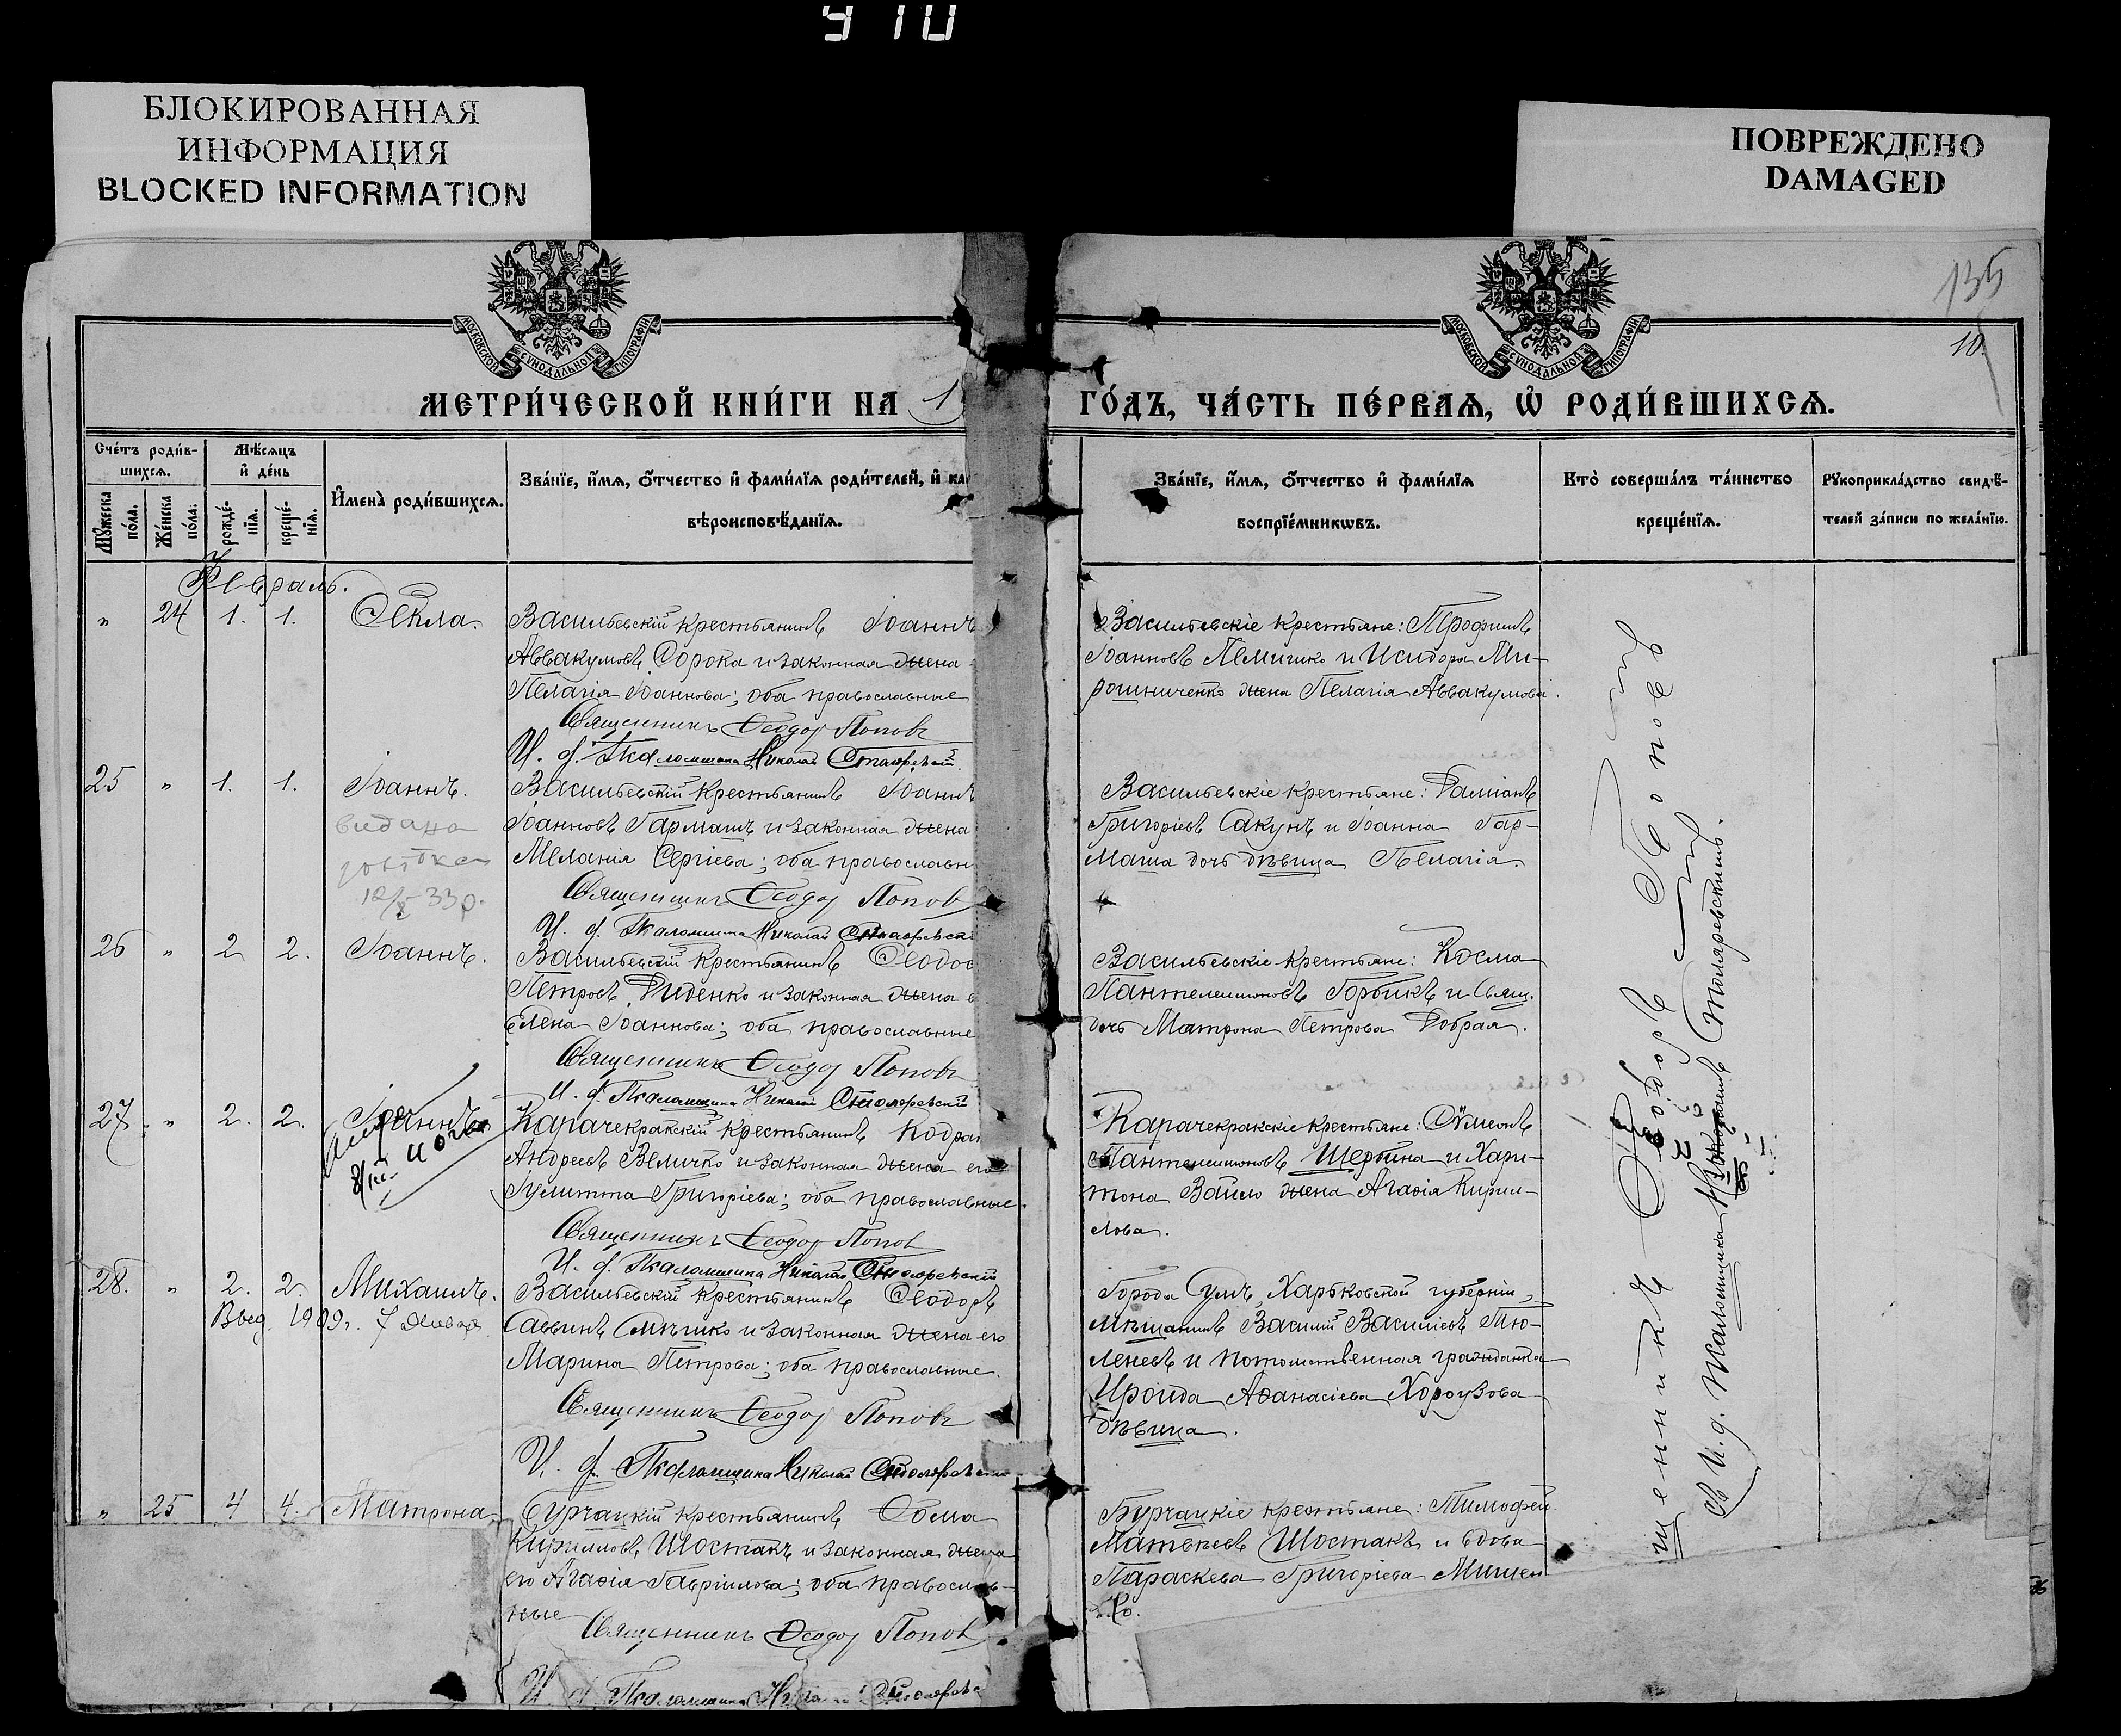 910
БЛОКИРОВАННАЯ
ИНФОРМАЦИЯ
BLOCKED INFORMATION
ПОВРЕЖДЕНО
DAMAGED
135
10.
МОСКОВСКОЙ СѴНОДАЛЬНОЙ ТИПОГРАФІИ
МОСКОВСКОЙ СѴНОДАЛЬНОЙ ТИПОГРАФІИ
МЕТРИ́ЧЕСКОЙ КНИ́ГИ НА 1
ГО́ДЪ, ЧА́СТЬ ПЕ́РВАѦ, Ѡ҆ РОДИ́ВШИХСѦ.
Сче́тъ роди́в-
шихсѧ.
Мѣ́сѧцъ
и҆ де́нь
Мꙋ́жеска
по́ла.
Же́нска
по́ла.
рожде́-
нїѧ.
креще́-
нїѧ.
И҆мена̀ роди́вшихсѧ.
Зва́нїе, и҆́мѧ, ѻ҆́тчество и҆ фами́лїѧ роди́телей, и҆
вѣроисповѣ́данїѧ.
Зва́нїе, и҆́мѧ, ѻ҆́тчество и҆ фами́лїѧ
воспрїе́мникѡвъ.
Кто̀ соверша́лъ та́инство
креще́нїѧ.
Рꙋкоприкла́дство свидѣ́-
телей за́писи по жела́нїю.
Февраль.
" 24 1. 1. Ѳекла.
Васильевскій крестьянинъ Іоаннъ
Аввакумовъ Сорока и законная жена
Пелагія Іоаннова; оба православные
Священникъ Ѳеодор Поповъ
И. д. Псаломщика Николай Столяревскій
Васильевскіе крестьяне: Трофимъ
Іоанновъ Лемишко и Исидора Ми-
рошниченко жена Пелагія Аввакумова.
25 " 1. 1. Іоаннъ.
видано
12/V 33 р.
Васильевскій крестьянинъ Іоаннъ
Іоанновъ Гармашъ и законная жена
Меланія Сергіева; оба православн
Священникъ Ѳеодор Поповъ
И. д. Псаломщика Николай Столяревскі
Васильевскіе крестьяне: Даміанъ
Григоріевъ Сакунъ и Іоанна Гар-
маша дочь дѣвица Пелагія.
26 " 2 2. Іоаннъ.
Васильевскій крестьянинъ Ѳеодос
Петровъ Диденко и законная жена е
Елена Іоаннова; оба православные
Священникъ Ѳеодор Поповъ
И. д. Псаломщика Николай Столяревскій
Васильевскіе крестьяне: Косма
Пантелеимоновъ Горбикъ и Свящ.
дочь Матрона Петрова Добрая.
27. " 2. 2. Іоаннъ.
Карачекракскій крестьянинъ Кодра
Андреевъ Величко и законная жена его
Іулитта Григоріева; оба православные.
Священникъ Ѳеодор Попов
И. д. Псаломщика Николай Столяревскій
Карачекракскіе крестьяне: Сѵмеонъ
Пантелеимоновъ Щербина и Хари-
тона Вайло жена Агаѳія Кирил-
лова.
28. " 2. 2. Михаилъ.
Выд. 1909г. 7 Января
Васильевскій крестьянинъ Ѳеодоръ
Саввинъ Смѣшко и законная жена его
Марина Петрова; оба православные.
Священникъ Ѳеодор Поповъ
И. д. Псаломщика Николай Столяревскій
Города Сумъ, Харьковской губерніи,
мѣщанинъ Василій Василіевъ Тю-
ленев и потомственная гражданка
Ироида Аѳанасіева Хороузова
дѣвица.
" 25 4 4. Матрона
Бурчацкій крестьянинъ Ѳома
Кирилловъ Шостакъ и законная жена
его Агаѳія Гавріилова; оба православ-
ные
Священникъ Ѳеодор Попов
И. д. Псаломщика Столяревс
Бурчацкіе крестьяне: Тимофей
Матвѣевъ Шостакъ и вдова
Параскева Григоріева Мишен
ко.
щенникъ Ѳеодоръ Поповъ
И. д. Псаломщика Столяревскимъ.